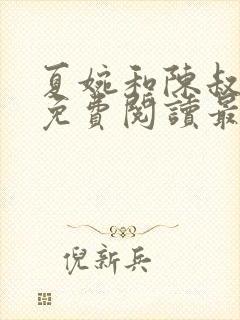 夏婉和陳叔
免費閱讀最
倪新兵